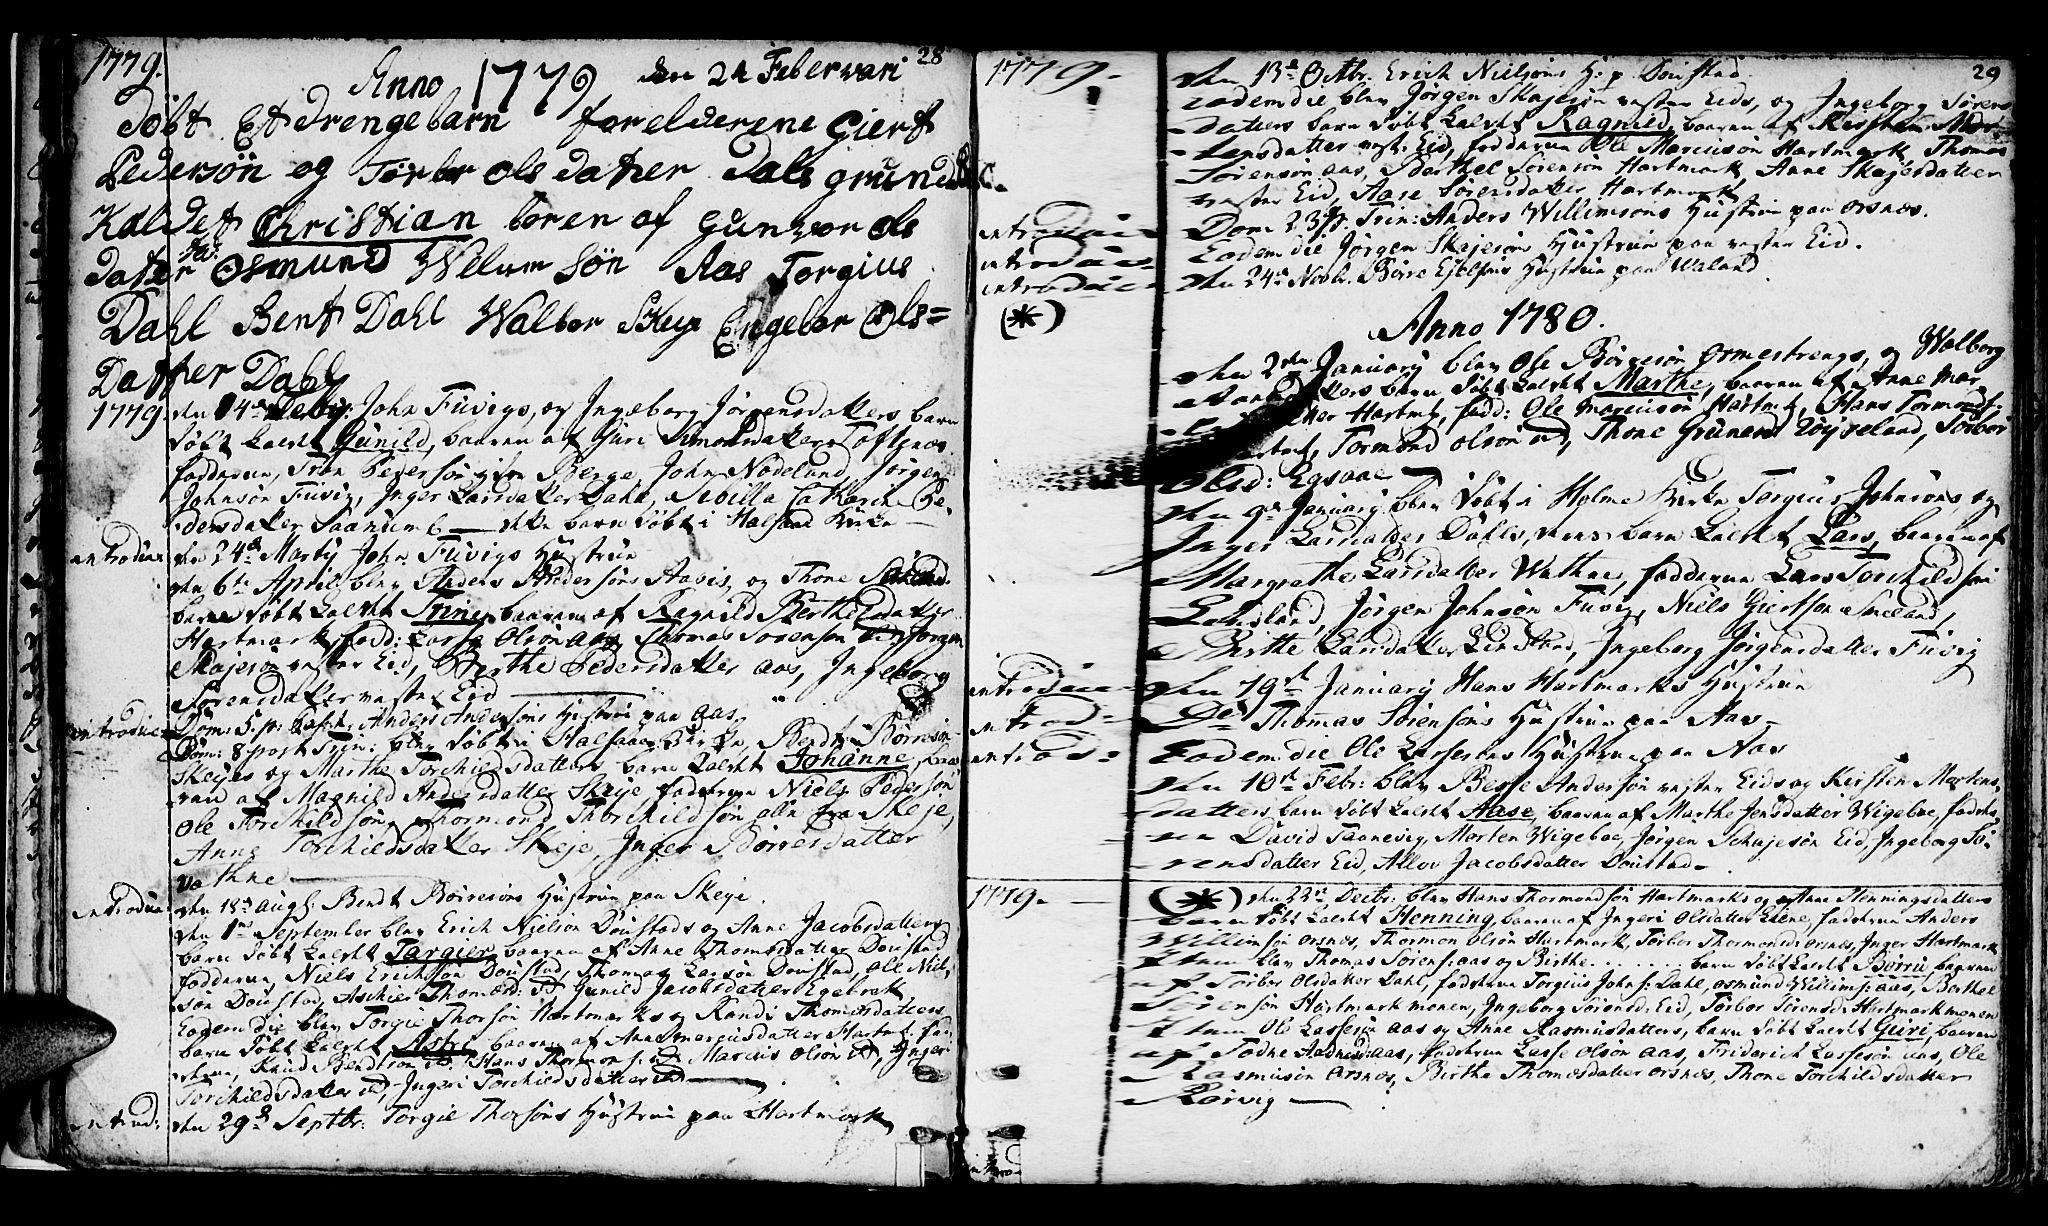 1779.
28
Anno 1779 den 21 Feberwari
döbt Et drengebarn forelderene Giert
Pedersön og Torbor Ols dater Dals grund
Kaldet Christian boren af gunvor ols
dater Fad: Osmund Welum Sön Aas Torgius
Dahl Bent Dahl Walbor Skeye Engebor Ols=
Datter Dahl
1779. den 14de Febr: John Fuvigs, og Ingeborg Jørgensdatters barn
døbt kaldt Gunild, baaren af Guri Simonsdatter Tofteness
fadderne, Tron Pedersøn Berge, John Nodeland, Jørgen
Johnsøn Fuvig, Inger Larsdatter Dahl, Sibilla Catharina Pe-
dersdatter Saanum dette barn døbt i Halsaae Kirke
introduc: den 24de Martij John Fuvigs Hustrue
den 6te April blev Anders Andersøns Aasis, og Thone
barn døbt kaldt Trine, baaren af Ragnild Berthelsdatter
Hartmark, fadd: Lasse Olsøn aas, Thomas Sørensøn Jørgen
Skajesøn vester Eid, Berthe Pedersdatter aas, Ingeborg
Sørensdatter vester Eid
introduc: Dom: 5 p: Pasch: Anders Andersøns Hustrue paa aas
Dom: 8 post Trin: blev døbt i Halsaae Kirke, Bendt Børresøn
Skeyes og Marthe Torchildsdatters barn kaldt Johanne, baa-
ren af Magnild Andersdatter Skeje, fadderne Niels Pedersøn
Ole Torchildsøn, Thormond Thorchildsøn alle fra Skeje,
Anne Torchildsdatter Skeje, Inger Børresdatter
Vathne
introduc: den 18de Augs. Bendt Børresøns Hustrue paa Skeje.
den 1me September blev Erich Nielsøn Doustads og Anne Jacobsdatters
barn døbt kaldt Targier, baaren af Anne Thomasdatter Doustad
fadderne, Niels Erichsøn Doustad, Thomas Larsøn Doustad, Ole Niel-
søn Doustad, Aschier Thomesd: ib Gunild Jacobsdatter Egebrek
Eodem die blev Torgie Thorsøn Hartmarks og Randi Thomesdatters
barn døbt kaldt Astri baaren af Anne Marcusdatter Hartm: fad-
derne, Knud Bendtsøn ib. Hans Thormons: ib Marcus Olsøn ib, Ingeri
Torchildsdatter ib, Ingeri Torchildsdatter ib
introd: den 29de Septbr: Torgie Thorsøns Hustrue paa Hartmark
1779.
29
den 13de Octbr. Erich Nielsøns H: p. Doustad.
eodem die blev Jørgen Skajesøn vester Eids, og Ingeborg Sørens
datters barn døbt kaldt Ragnild, baaren af Kirsten Mor-
tensdatter vest: Eid, fadderne Ole Marcusøn Hartmark, Thomas
Sørensøn aas, Berthel Sørensøn Hartmark, Anne Skajesdatter
vester Eid, Aase Sørensdatter Hartmark
introduc: Dom: 23 p. Trin: Anders Willumsøns Hustrue paa orsnes.
introduc: Eodem die Jørgen Skajesøns Hustrue paa vester Eid.
introduc: den 24de Novbr. Børre Ejelsens Hustrue paa Waland
(*)
Anno 1780.
den 2den January blev Ole Børgesøn ormestrengs, og Walborg
barn døbt kaldt Marthe, baaren af Anne Mar-
Hartm, fadd: Ole Marcusøn Hartm, Hans Tormonds:
Tormond Olsøn ib, Thone Grunesd Røyseland, Torbor
Olsd: Egsaae
den 9de January blev døbt i Holme Kirke Torgius Johnsøns, og
Inger Larsdatter Dahls, barn kaldt Lars, baaren af
Margrethe Larsdatter Wathne, fadderne Lars Torchildsøn
Lundland, Jørgen Johnsøn Fuvig, Niels Giertsøn Smeland,
Birthe Larsdatter Lindland, Ingeborg Jørgensdatter Fuvig
introduc: den 19de January Hans Hartmarks Hustrue
introd: Do Thomas Sørensøns Hustrue paa Aas
introd: eodem die Ole Lassesens Hustrue paa Aas
den 10de Febr: blev Besse Andersøn vester Eids og Kirsten Mortens-
datters barn døbt kaldt Aase, baaren af Marthe Jensdatter Wigebae, fadde-
rne David Taanevig, Morten Wigebae, Jørgen Schajesøn Eid, Ingeborg Sø-
rensdatter Eid, Allov Jacobsdatter Doustad
1779. (*) den 22de Decbr: blev Hans Thormondsøn Hartmarks og Anne Henningsdatters
barn døbt kaldt Henning, baaren af Ingeri Olsdatter Leene, fadderne Anders
Willumsøn orsnes, Thormon Olsøn Hartmark, Torbor Thormonsd: orsnes, Inger Hartmark
Item blev Thomas Sørens: aas og Birthe . . . . . . . barn døbt kaldt Børru, baaren
af Torbor Olsdatter Dahl, fadderne Torgius Johns: Dahl, osmund Willums: aas, Berthel
Sørensøn Hartmark monen, Ingeborg Sørensd: Eid, Torbor Sørensd: Hartmark monen
Item Ole Lassesøn aas og Anne Rasmusdatters, barn døbt kaldt Guri, baaren
af Todne Aadnesd: aas, fadderne Lasse Olsøn aas, Friderich Lassesøn aas, Ole
Rasmusen orsnes, Birthe Thomesdatter orsnes, Thone Torchildsdatter
Rørvig